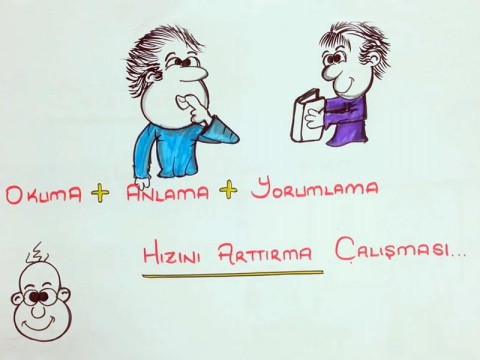 OKUMA + ANLAMA + YORUMLAMA
HIZINI ARTTIRMA ÇALIŞMASI...